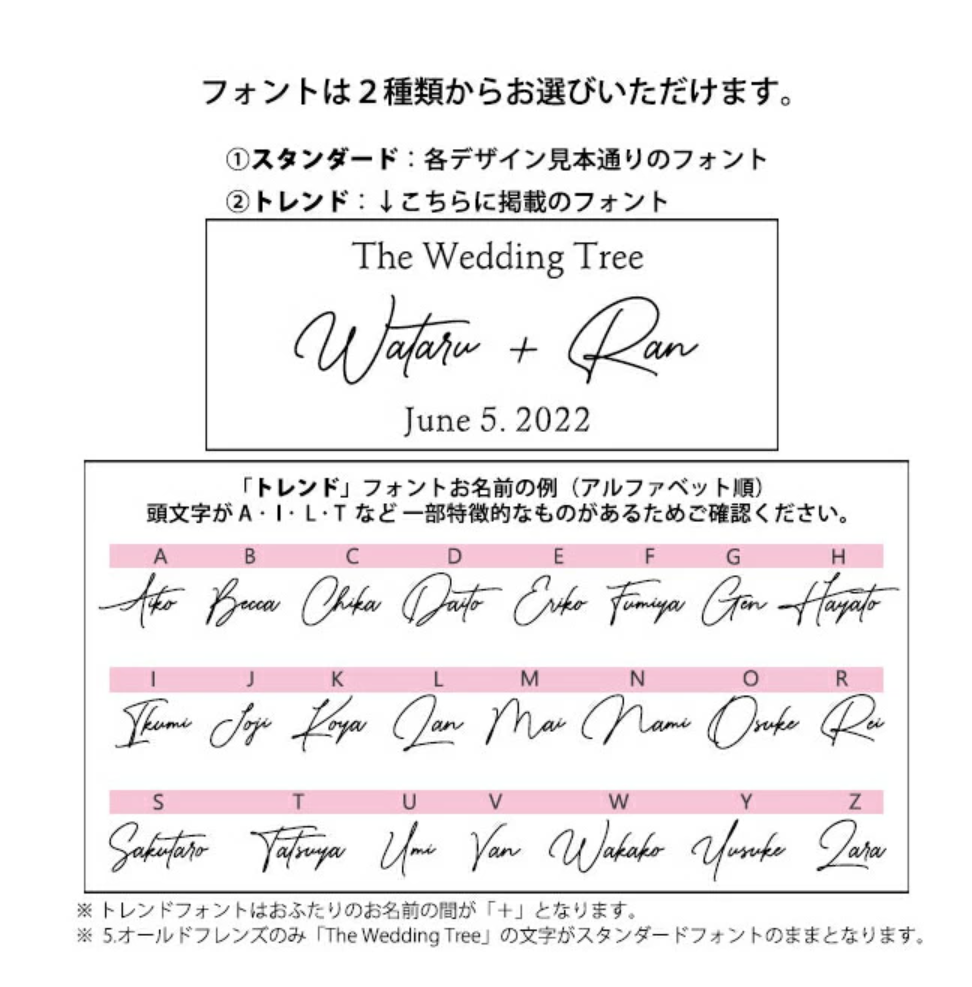 フォントは２種類からお選びいただけます。
①スタンダード：各デザイン見本通りのフォント
②トレンド：↓こちらに掲載のフォント
The Wedding Tree
Wataru + Ran
June 5. 2022
「トレンド」フォントお名前の例（アルファベット順）
頭文字が A・I・L・T など一部特徴的なものがあるためご確認ください。
A B C D E F G H
Aiko Becca Chika Daito Eriko Fumiya Gen Hayato
I J K L M N O R
Ikumi Joji Koya Lan Mai Nami Osuke Rei
S T U V W Y Z
Sakutaro Tatsuya Umi Van Wakako Yusuke Zara
※ トレンドフォントはおふたりのお名前の間が「＋」となります。
※ 5.オールドフレンズのみ「The Wedding Tree」の文字がスタンダードフォントのままとなります。